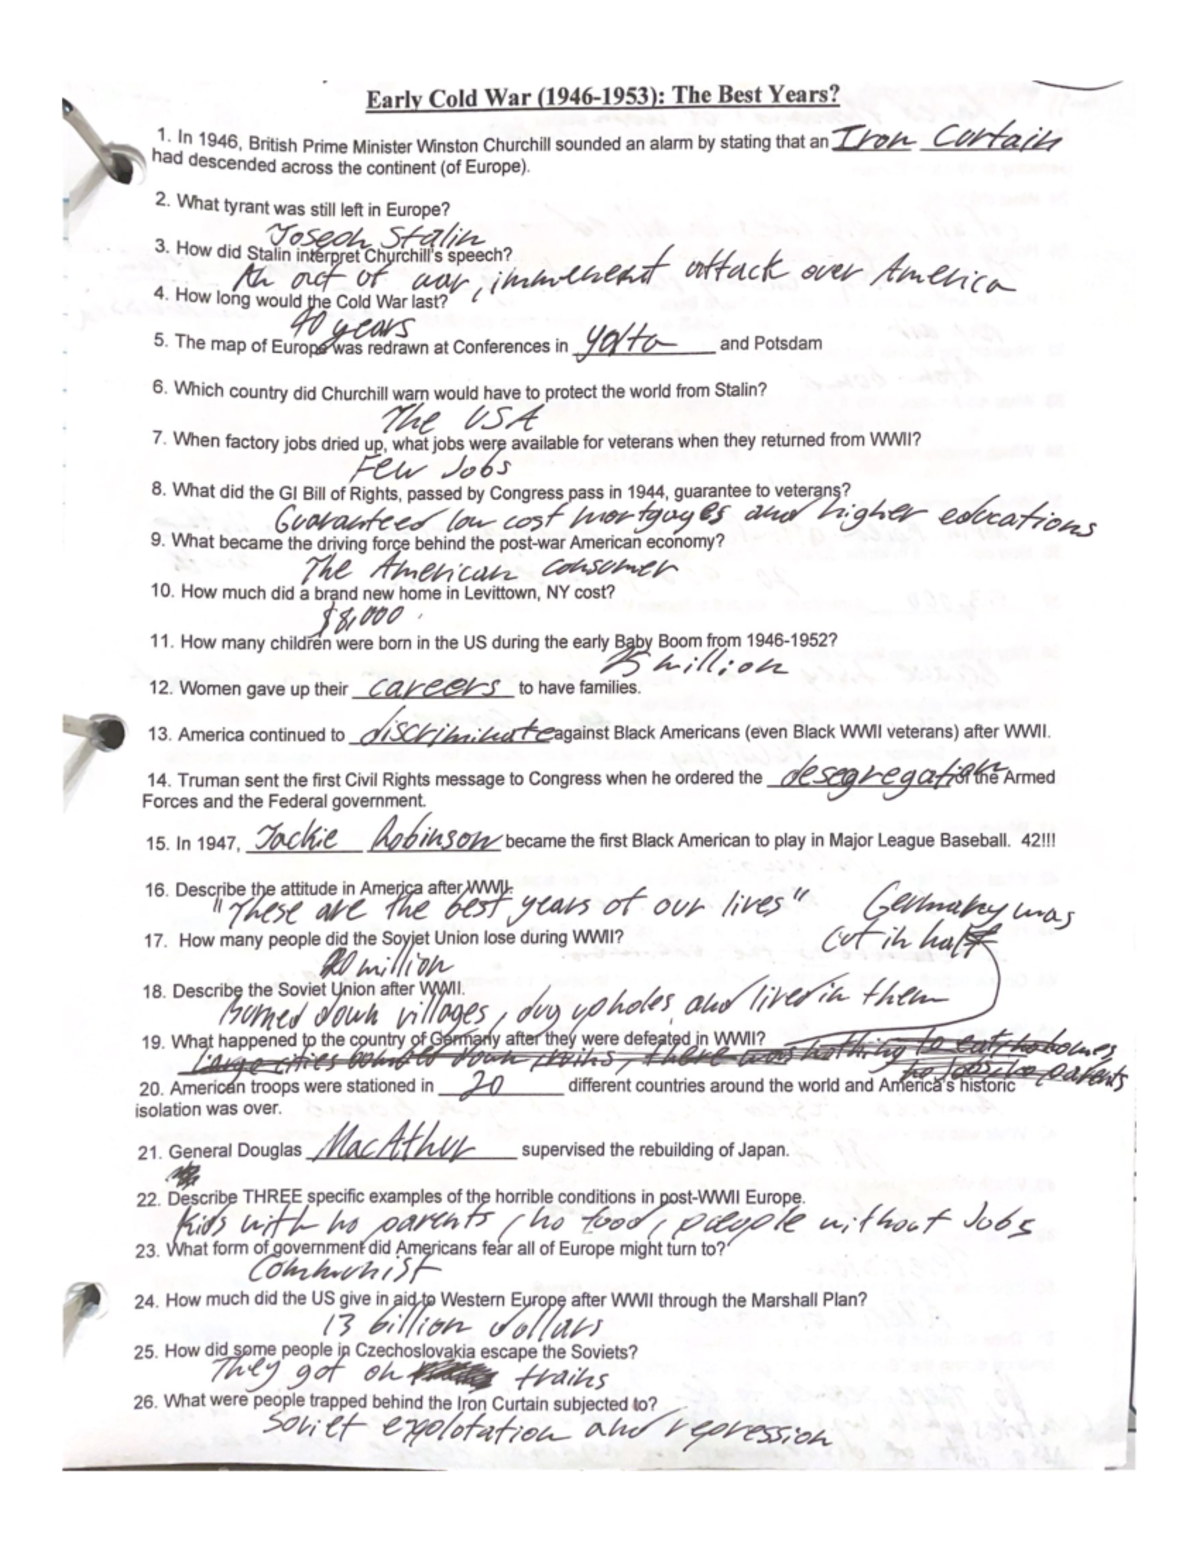 Early Cold War (1946-1953): The Best Years?
1. In 1946, British Prime Minister Winston Churchill sounded an alarm by stating that an Iron Curtain
had descended across the continent (of Europe).
2. What tyrant was still left in Europe?
Joseph Stalin
3. How did Stalin interpret Churchill's speech?
An act of war, immenent attack over America
4. How long would the Cold War last?
40 years
5. The map of Europe was redrawn at Conferences in Yalta and Potsdam
6. Which country did Churchill warn would have to protect the world from Stalin?
The USA
7. When factory jobs dried up, what jobs were available for veterans when they returned from WWII?
Few Jobs
8. What did the GI Bill of Rights, passed by Congress pass in 1944, guarantee to veterans?
Guaranteed low cost mortgages and higher educations
9. What became the driving force behind the post-war American economy?
The American consumer
10. How much did a brand new home in Levittown, NY cost?
$8,000
11. How many children were born in the US during the early Baby Boom from 1946-1952?
25 million
12. Women gave up their careers to have families.
13. America continued to discriminate against Black Americans (even Black WWII veterans) after WWII.
14. Truman sent the first Civil Rights message to Congress when he ordered the desegregation of the Armed
Forces and the Federal government.
15. In 1947, Jackie Robinson became the first Black American to play in Major League Baseball. 42!!!
16. Describe the attitude in America after WWII.
"These are the best years of our lives"
Germany was
17. How many people did the Soviet Union lose during WWII?
cut in half
20 million
18. Describe the Soviet Union after WWII.
Burned down villages, dug up holes and lived in them
19. What happened to the country of Germany after they were defeated in WWII?
Large cities down ruins, there was nothing to eat, no homes
no parents
20. American troops were stationed in 20 different countries around the world and America's historic
isolation was over.
21. General Douglas MacAthur supervised the rebuilding of Japan.
22. Describe THREE specific examples of the horrible conditions in post-WWII Europe.
Kids with no parents, no food, people without Jobs
23. What form of government did Americans fear all of Europe might turn to?
Communist
24. How much did the US give in aid to Western Europe after WWII through the Marshall Plan?
13 billion dollars
25. How did some people in Czechoslovakia escape the Soviets?
They got on trains
26. What were people trapped behind the Iron Curtain subjected to?
Soviet explotation and repression